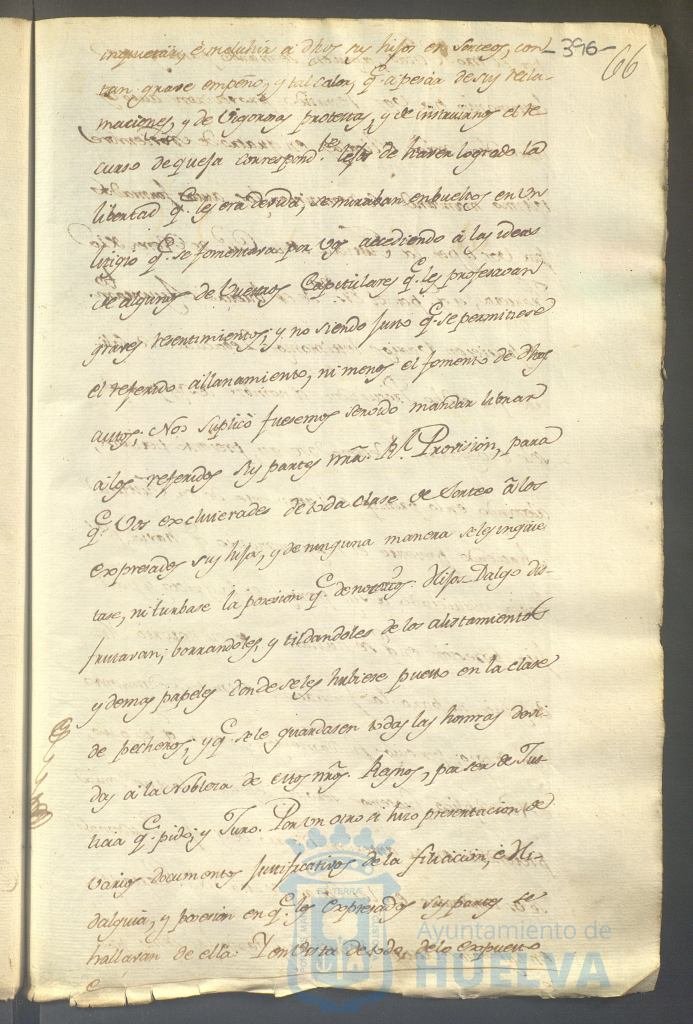 inquietar, é incluhir a dhos sus hijos en Sorteos, con -396- 66
tan grave empeño, y tal calor, q.e a pesar de sus recla-
maciones, y de vigorosas protestas, y de instrurarnos el re
curso de quexa correspond.te lejos de haver logrado la
libertad q.e les era devida, se miraban enbueltos en un
litigio q.e se fomentava por vos accediendo á las ideas
de algunos de Vuestros Capitulares q.e les profesavan
graves resentimientos, y no siendo justo q.e se permitiese
el referido allanamiento, ni menos el fomento de dhos
autos; Nos suplicó fuesemos servido mandar librar
a los referidos sus partes nrã. R.l Provision, para
q.e Vos excluierades de toda clase de Sorteo á los
expresados sus hijos, y de ninguna manera se les inquie
tase, ni turbase la posesion q.e de notorios Hijos-Dalgo dis-
frutavan; borrandoles, y tildandoles de los alistamientos
y demas papeles donde se les hubiese puesto en la clase
de pecheros, y q.e se le guardasen todas las honrras devi-
das a la Nobleza de estos nrõs. Reynos, por ser de Jus-
ticia q.e pido, y Juro. Por un otro si hizo presentacion de
varios documentos justificativos de la filiacion, e Hi-
dalguia, y posesion en q.e los expresados sus partes se
hallavan de ella. Y en vista de todo, de lo expuesto
Ayuntamiento de
HUELVA